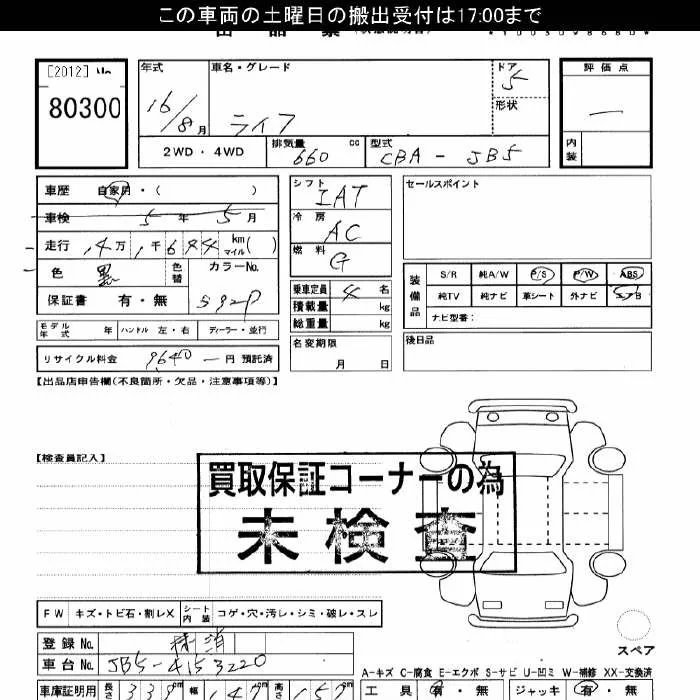 この車両の土曜日の搬出受付は17:00まで
[2012] No
80300
年式
16/8月
車名・グレード
ライフ
ドア
5
形状
2WD・4WD
排気量
660
cc
型式
CBA - JB5
評価点
内装
車歴 自家用・( )
車検 5年 5月
走行 14万1千644 km マイル( )
色 黒
色替
カラーNo.
保証書 有・無
592P
モデル年式 年
ハンドル 左・右
ディーラー・並行
リサイクル料金 9640-円 預託済
シフト
IAT
冷房
AC
燃料
G
乗車定員 4名
積載量 kg
総重量 kg
名変期限
月 日
セールスポイント
装備品
S/R 純A/W P/S P/W ABS
純TV 純ナビ 革シート 外ナビ エアB
ナビ型番：
後日品
【出品店申告欄(不良箇所・欠品・注意事項等)】
【検査員記入】
買取保証コーナーの為
未検査
FW キズ・トビ石・割レX
シート内装 コゲ・穴・汚レ・シミ・破レ・スレ
登録No. 抹消
車台No. JB5-4153220
スペア
A-キズ C-腐食 E-エクボ S-サビ U-凹ミ W-補修 XX-交換済
車庫証明用 長さ 339cm 幅 147 高さ 157
工具 有・無 ジャッキ 有・無